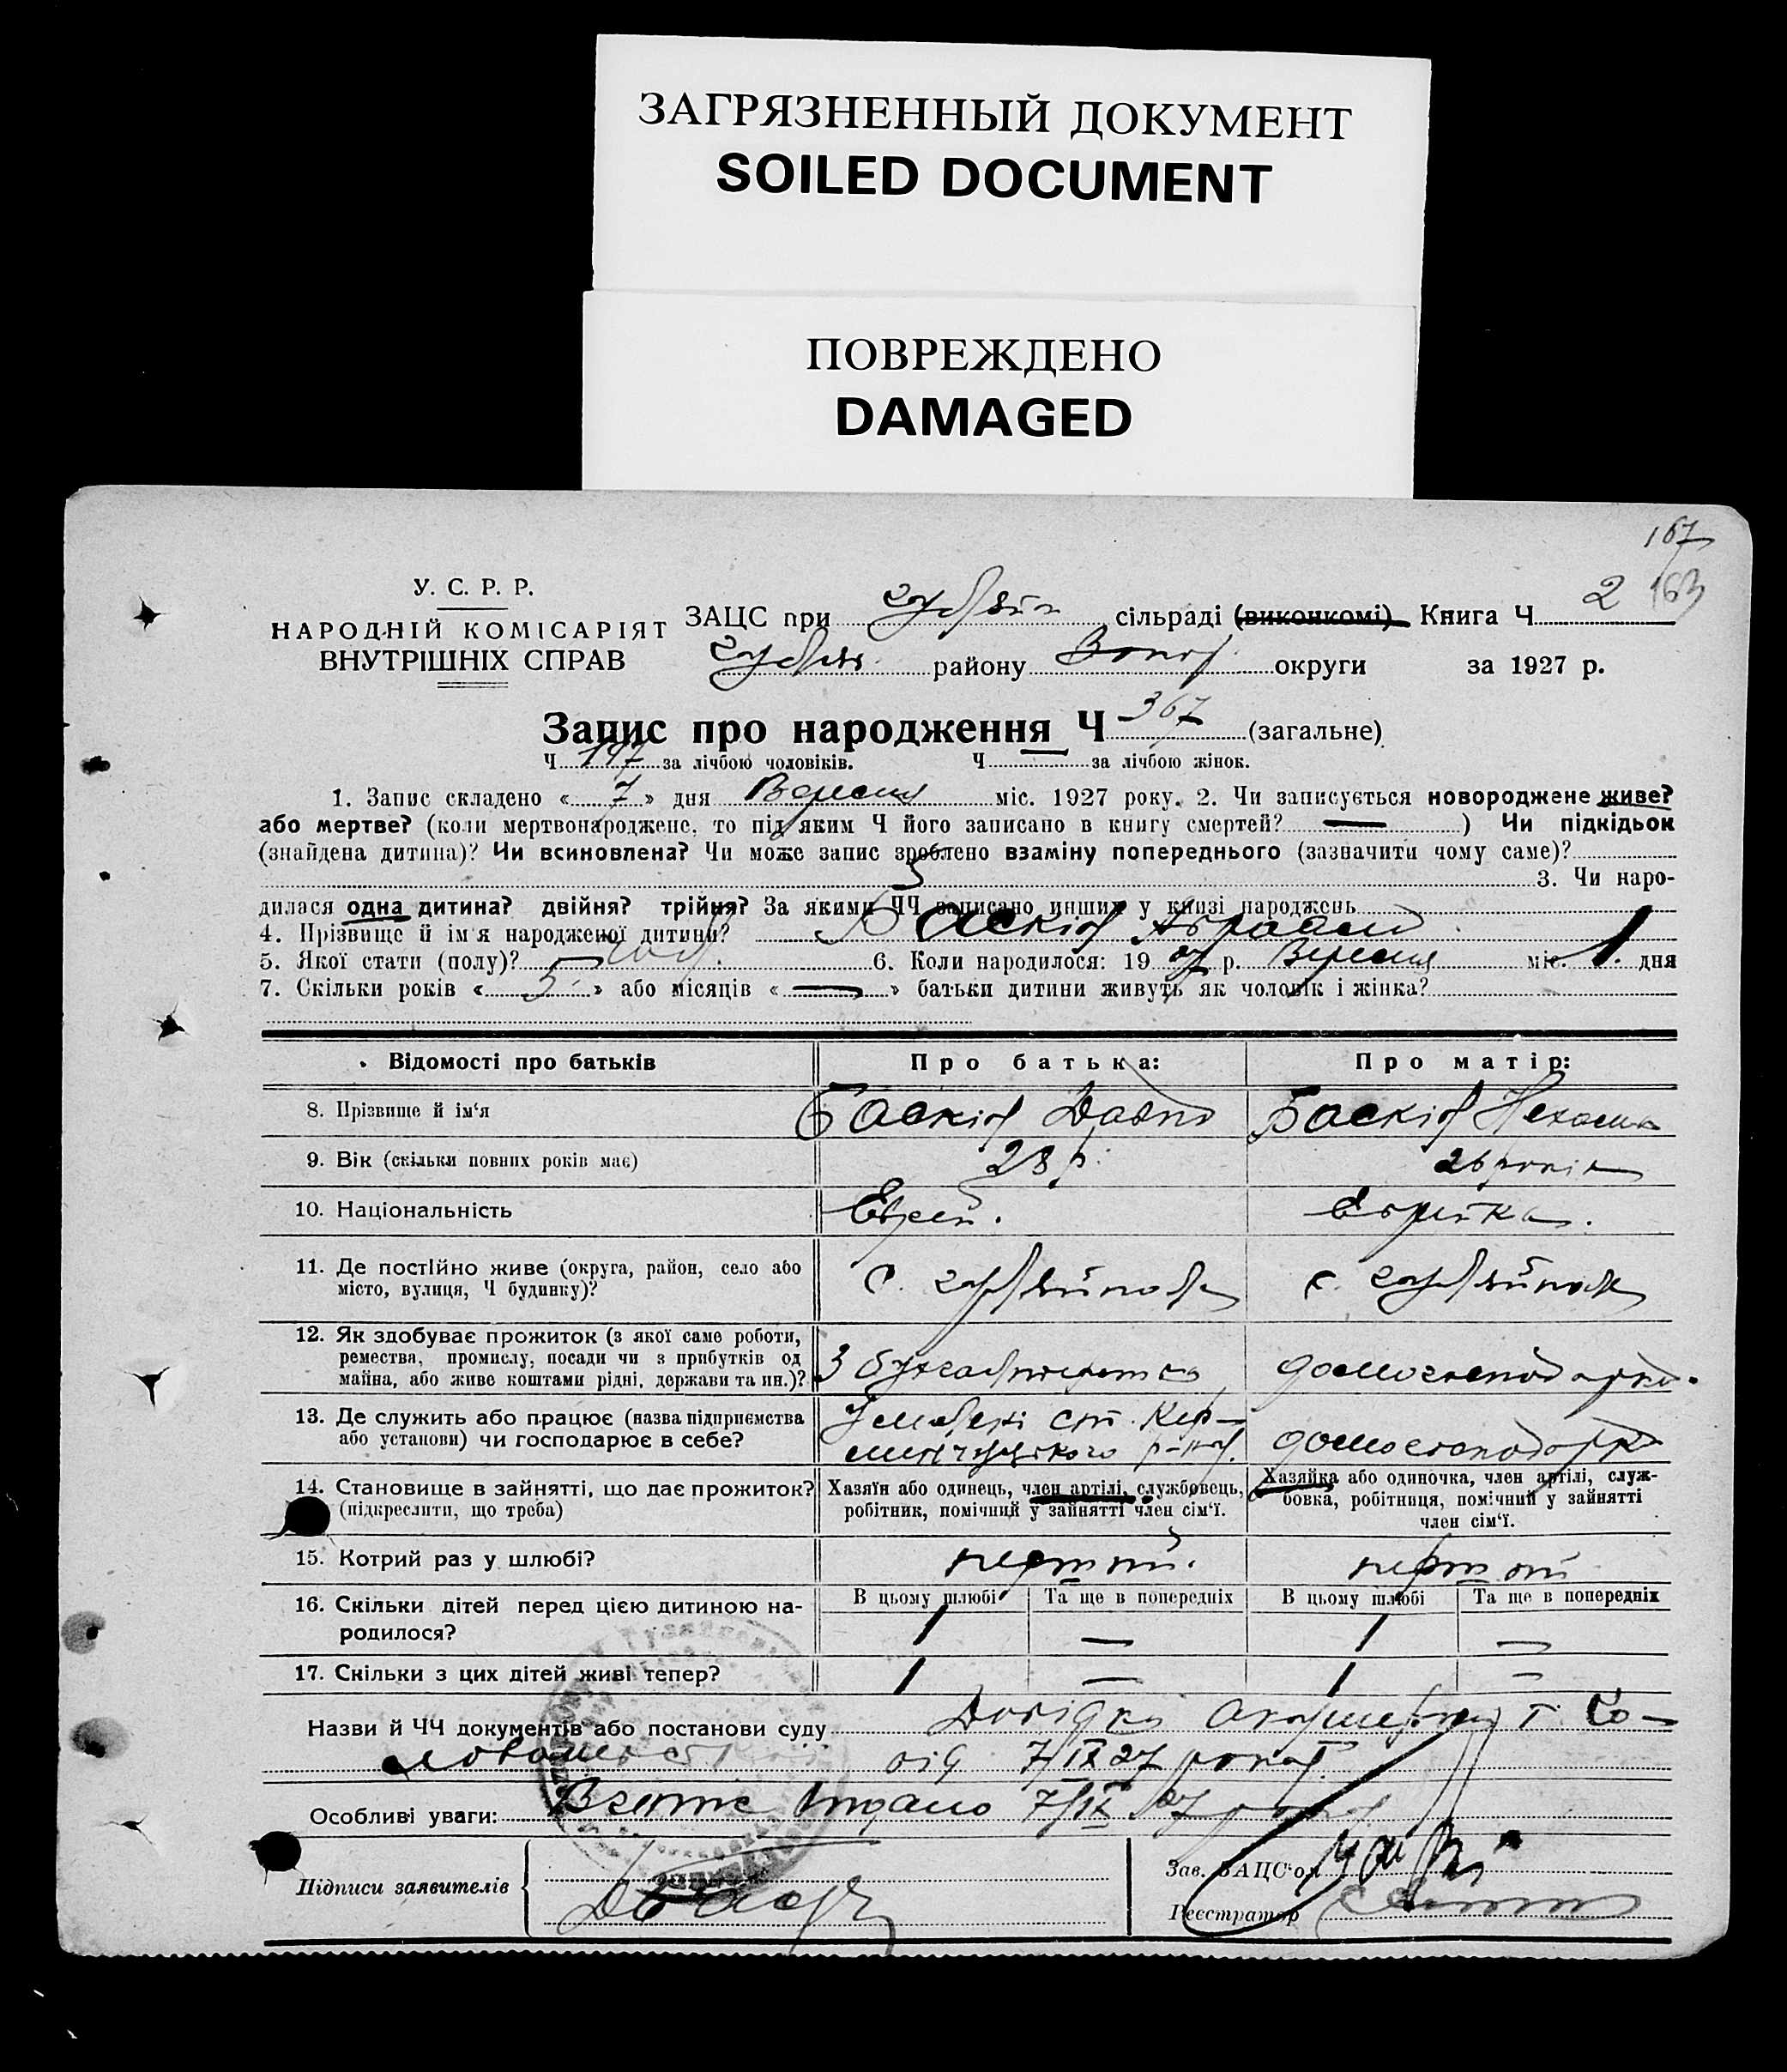 ЗАГРЯЗНЕННЫЙ ДОКУМЕНТ
SOILED DOCUMENT
ПОВРЕЖДЕНО
DAMAGED
167
2 163
У. С. Р. Р.
НАРОДНІЙ КОМІСАРІЯТ
ВНУТРІШНІХ СПРАВ
ЗАЦС при сільраді (виконкомі) Книга Ч
району округи за 1927 р.
Запис про народження Ч 367 (загальне)
Ч 197 за лічбою чоловіків. Ч за лічбою жінок.
1. Запис складено « 7 » дня Вересня міс. 1927 року. 2. Чи записується новороджене живе?
або мертве? (коли мертвонароджене, то під яким Ч його записано в книгу смертей? — ) Чи підкідьок
(знайдена дитина)? Чи всиновлена? Чи може запис зроблено взаміну попереднього (зазначити чому саме)?
3. Чи наро-
дилася одна дитина? двійня? трійня? За якими ЧЧ записано инших у книзі народжень
4. Прізвище й ім'я народженої дитини? Баскін Абраам
5. Якої стати (полу)? 6. Коли народилося: 19 27 р. Вересня міс. 1. дня
7. Скільки років « 5 » або місяців « — » батьки дитини живуть як чоловік і жінка?
Відомості про батьків Про батька: Про матір:
8. Прізвище й ім'я Баскін Давид Баскін Нехама
9. Вік (скільки повних років має) 28 р. 26 років
10. Національність Еврей. Еврейка.
11. Де постійно живе (округа, район, село або
місто, вулиця, Ч будинку)? с. с.
12. Як здобуває прожиток (з якої саме роботи,
ремества, промислу, посади чи з прибутків од
майна, або живе коштами рідні, держави та ин.)? З домогосподарка.
13. Де служить або працює (назва підприємства
або установи) чи господарює в себе? домогосподарка
14. Становище в зайнятті, що дає прожиток? Хазяїн або одинець, член артілі, службовець, Хазяйка або одиночка, член артілі, служ-
(підкреслити, що треба) робітник, помічний у зайнятті член сім'ї. бовка, робітниця, помічний у зайнятті
член сім'ї.
15. Котрий раз у шлюбі? перший. перший
16. Скільки дітей перед цією дитиною на- В цьому шлюбі Та ще в попередніх В цьому шлюбі Та ще в попередніх
родилося? 1 — 1 —
17. Скільки з цих дітей живі тепер? 1 — 1 —
Назви й ЧЧ документів або постанови суду Довідка
від 7/IX 27 року.
Особливі уваги: 7/IX 27 року
Підписи заявителів Зав. ЗАЦС'ом
Реєстратор